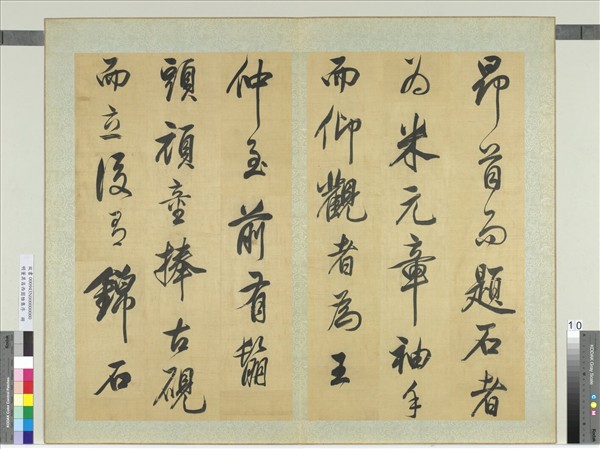 昂首而題石者
為米元章袖手
而仰觀者為王
仲至前有鬅
頭頑童捧古硯
而立後有錦石
10